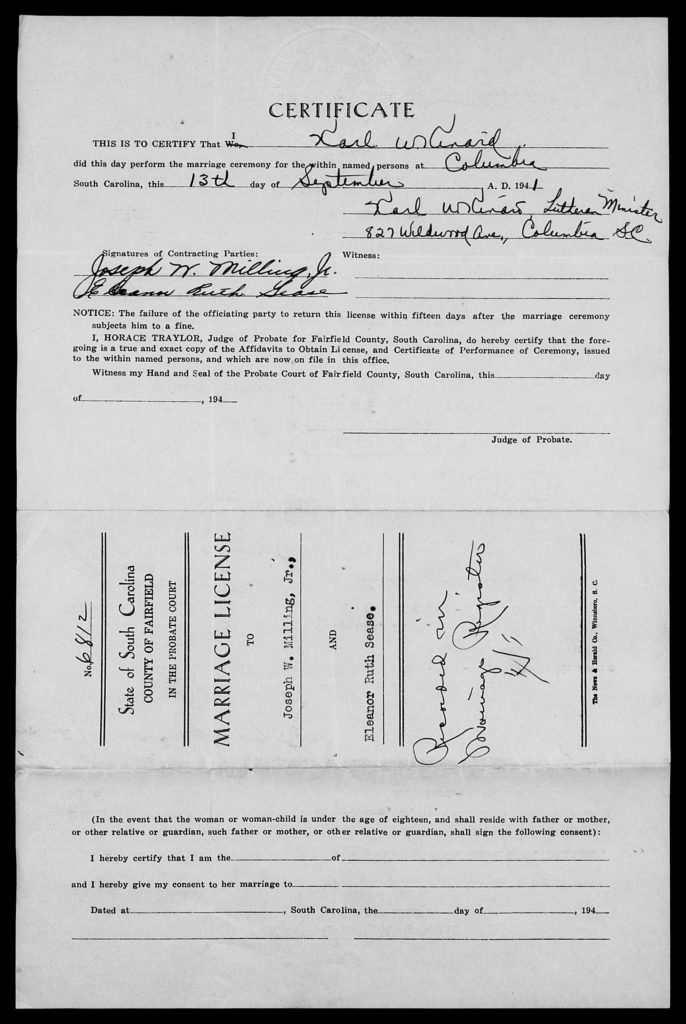 CERTIFICATE
I
THIS IS TO CERTIFY That We, Karl W Kinard
did this day perform the marriage ceremony for the within named persons at Columbia
South Carolina, this 13th day of September A. D. 1941
Karl W Kinard, Lutheran Minister
827 Wildwood Ave., Columbia S.C.
Signatures of Contracting Parties: Witness:
Joseph W. Milling, Jr.
Eleanor Ruth Sease
NOTICE: The failure of the officiating party to return this license within fifteen days after the marriage ceremony
subjects him to a fine.
I, HORACE TRAYLOR, Judge of Probate for Fairfield County, South Carolina, do hereby certify that the fore-
going is a true and exact copy of the Affidavits to Obtain License, and Certificate of Performance of Ceremony, issued
to the within named persons, and which are now on file in this office.
Witness my Hand and Seal of the Probate Court of Fairfield County, South Carolina, this day
of , 194
Judge of Probate.
No. 6812
State of South Carolina
COUNTY OF FAIRFIELD
IN THE PROBATE COURT
MARRIAGE LICENSE
TO
Joseph W. Milling, Jr.,
AND
Eleanor Ruth Sease.
Recorded in
Marriage Register
The News & Herald Co., Winnsboro, S. C.
(In the event that the woman or woman-child is under the age of eighteen, and shall reside with father or mother,
or other relative or guardian, such father or mother, or other relative or guardian, shall sign the following consent):
I hereby certify that I am the of
and I hereby give my consent to her marriage to
Dated at , South Carolina, the day of , 194